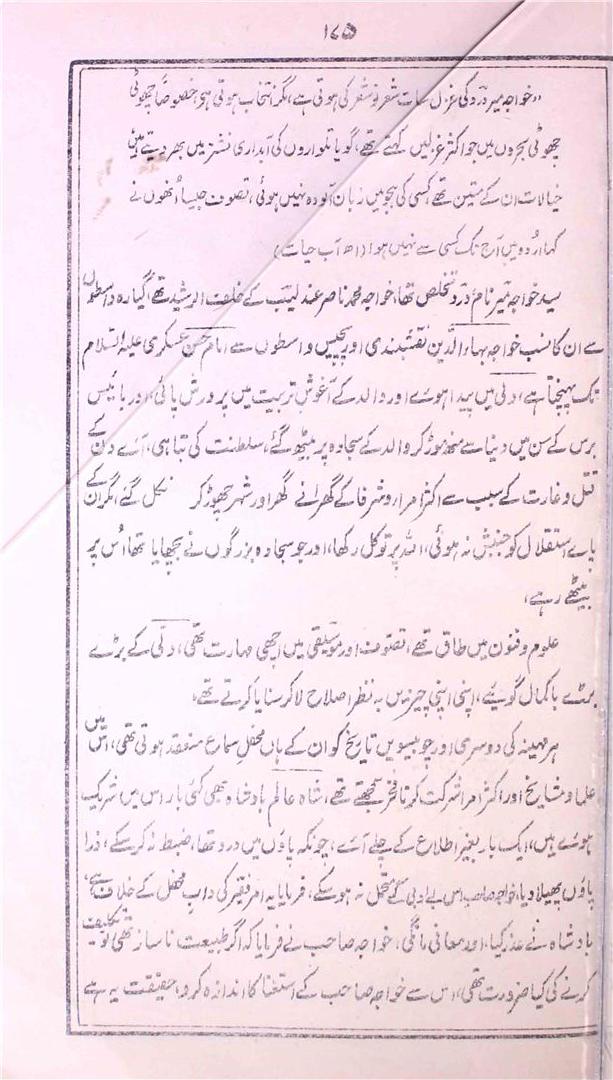 ۱۸۵
"خواجہ میر درد کی غزل سات شعر نو شعر کی ہوتی ہے، مگر انتخاب ہوتی ہی، خصوصاً چھوٹی
چھوٹی بحروں میں جو اکثر غزلیں کہتے تھے، گویا تلواروں کی آبداری نشتر میں بھر دیتے ہیں
خیالات ان کے متین تھے، کسی کی ہجو میں زبان آلودہ نہیں ہوئی، تصوف جیسا اُنھوں نے
کہا، اُردو میں آج تک کسی سے نہیں ہوا (اھ آب حیات)
سید خواجہ میر نام، درد تخلص تھا، خواجہ محمد ناصر عندلیب کے خلف الرشید تھے، گیارہ واسطوں
سے ان کا نسب خواجہ بہاء الدین نقشبندی اور پچیس واسطوں سے امام حسن عسکری علیہ السلام
تک پہنچتا ہے، دلی میں پیدا ہوے اور والد کے آغوش تربیت میں پرورش پائی، اور بائیس
برس کے سن میں دنیا سے منھ موڑ کر والد کے سجادہ پر بیٹھ گئے، سلطنت کی تباہی، آے دن کے
قتل و غارت کے سبب سے اکثر امراء و شرفا کے گھرانے گھر اور شہر چھوڑ کر نکل گئے، مگر ان کے
پاے استقلال کو جنبش نہ ہوئی، اللہ پر توکل رکھا، اور جو سجادہ بزرگوں نے بچھایا تھا اُس پر
بیٹھے رہے،
علوم و فنون میں طاق تھے، تصوف اور موسیقی میں اچھی مہارت تھی، دلی کے بڑے
بڑے باکمال گویئے، اپنی اپنی چیزیں بہ نظر اصلاح لا کر سنایا کرتے تھے،
ہر مہینہ کی دوسری اور چوبیسویں تاریخ کو ان کے ہاں محفل سماع منعقد ہوتی تھی، اس میں
علما و مشایخ اور اکثر امرا شرکت کرنا فخر سمجھتے تھے، شاہ عالم بادشاہ بھی کئی بار اس میں شریک
ہوے ہیں، ایک بار بغیر اطلاع کے چلے آے، چونکہ پاؤں میں درد تھا، ضبط نہ کر سکے، ذرا
پاؤں پھیلا دیا، خواجہ صاحب اس بے ادبی کے متحمل نہ ہو سکے، فرمایا یہ امر فقیر کی داب محفل کے خلاف ہے،
بادشاہ نے عذر کیا، اور معافی مانگی، خواجہ صاحب نے فرمایا کہ اگر طبیعت ناساز تھی تو تکلیف
کرنے کی کیا ضرورت تھی، اس سے خواجہ صاحب کے استغنا کا اندازہ کرو، حقیقت یہ ہے